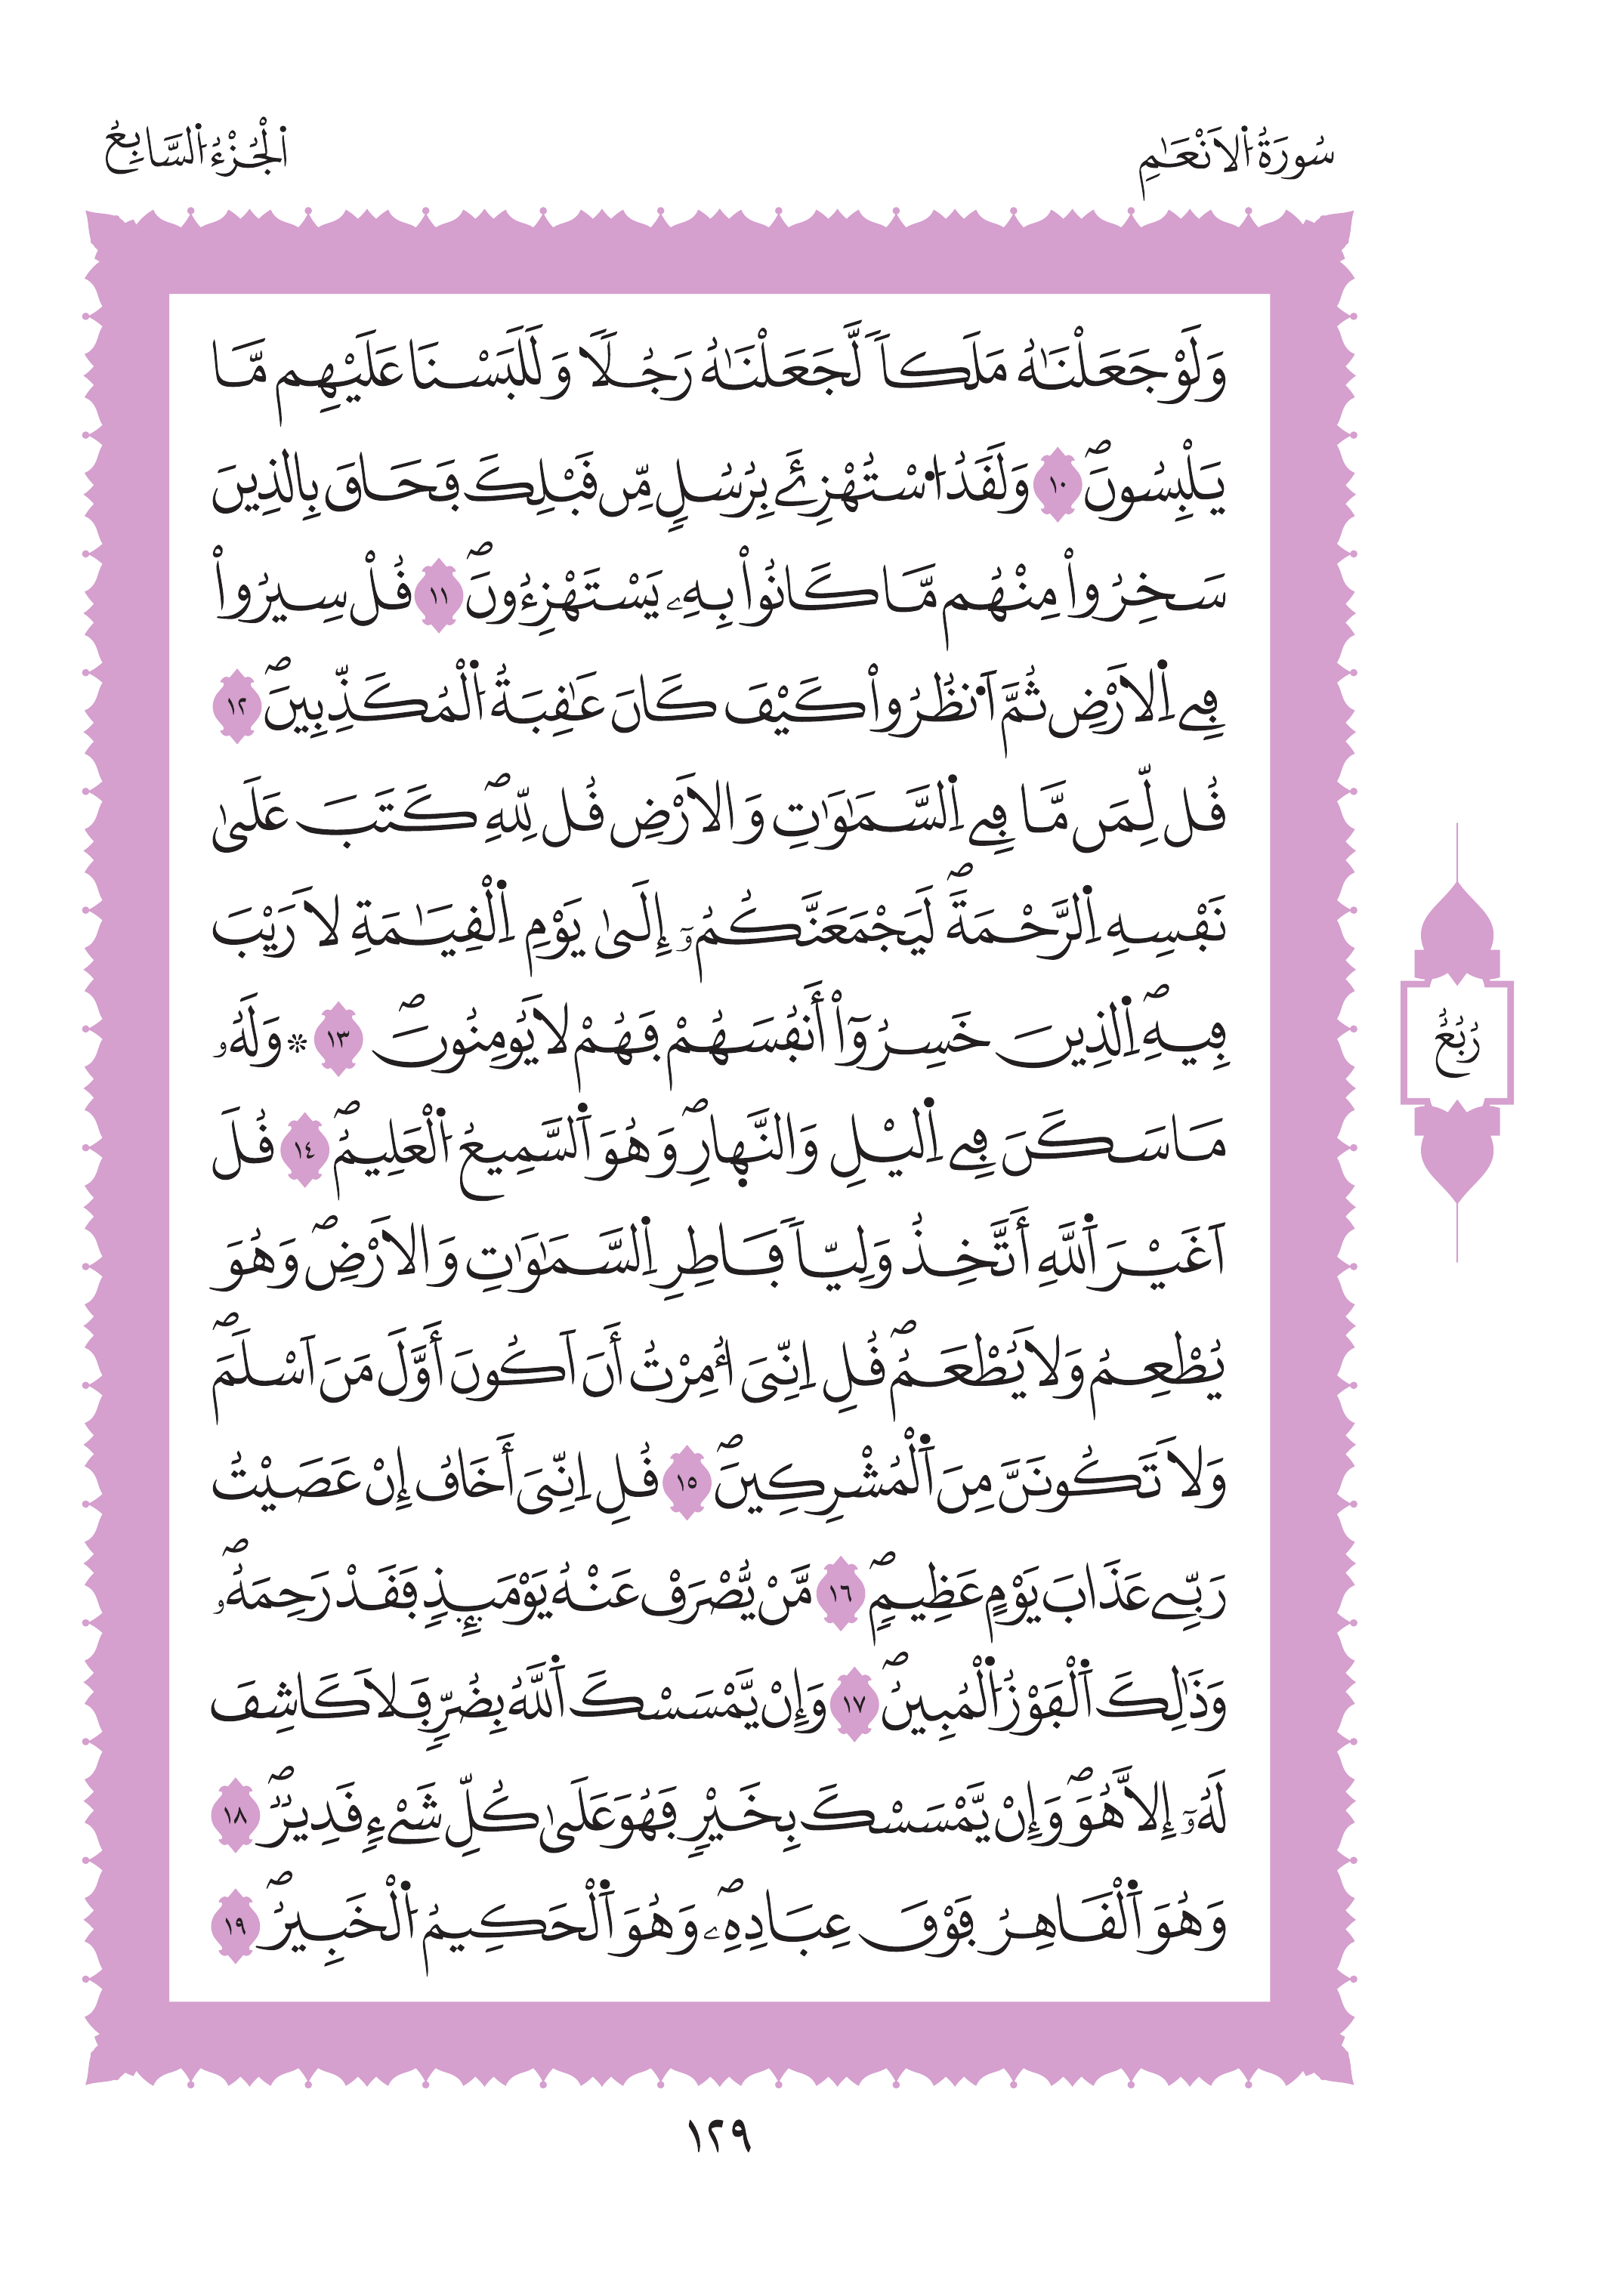 سُورَةُ اُ۬لَانْعَٰمِ
اَ۬لْجُزْءُ اُ۬لسَّابِعُ
وَلَوْ جَعَلْنَٰهُ مَلَكاٗ لَّجَعَلْنَٰهُ رَجُلٗا وَلَلَبَسْنَا عَلَيْهِم مَّا
يَلْبِسُونَۖ ١٠ وَلَقَدُ اُ۟سْتُهْزِۓَ بِرُسُلٖ مِّن قَبْلِكَ فَحَاقَ بِالذِينَ
سَخِرُواْ مِنْهُم مَّا كَانُواْ بِهِۦ يَسْتَهْزِءُونَۖ ١١ قُلْ سِيرُواْ
فِے اِ۬لَارْضِ ثُمَّ اَ۟نظُرُواْ كَيْفَ كَانَ عَٰقِبَةُ اُ۬لْمُكَذِّبِينَۖ ١٢
قُل لِّمَن مَّا فِے اِ۬لسَّمَٰوَٰتِ وَالَارْضِ قُل لِّلهِۖ كَتَبَ عَلَىٰ
نَفْسِهِ اِ۬لرَّحْمَةَۖ لَيَجْمَعَنَّكُمُۥٓ إِلَىٰ يَوْمِ اِ۬لْقِيَٰمَةِ لَا رَيْبَ
فِيهِۖ اِ۬لذِينَ خَسِرُوٓاْ أَنفُسَهُمْ فَهُمْ لَا يُومِنُونَۖ ١٣ ۞ وَلَهُۥ
مَا سَكَنَ فِے اِ۬ليْلِ وَالنَّه۪ارِۖ وَهُوَ اَ۬لسَّمِيعُ اُ۬لْعَلِيمُۖ ١٤ قُلَ
اَغَيْرَ اَ۬للَّهِ أَتَّخِذُ وَلِيّاٗ فَاطِرِ اِ۬لسَّمَٰوَٰتِ وَالَارْضِۖ وَهُوَ
يُطْعِمُ وَلَا يُطْعَمُۖ قُلِ اِنِّيَ أُمِرْتُ أَنَ اَكُونَ أَوَّلَ مَنَ اَسْلَمَۖ
وَلَا تَكُونَنَّ مِنَ اَ۬لْمُشْرِكِينَۖ ١٥ قُلِ اِنِّيَ أَخَافُ إِنْ عَصَيْتُ
رَبِّے عَذَابَ يَوْمٍ عَظِيمٖۖ ١٦ مَّنْ يُّصْرَفْ عَنْهُ يَوْمَئِذٖ فَقَدْ رَحِمَهُۥۖ
وَذَٰلِكَ اَ۬لْفَوْزُ اُ۬لْمُبِينُۖ ١٧ وَإِنْ يَّمْسَسْكَ اَ۬للَّهُ بِضُرّٖ فَلَا كَاشِفَ
لَهُۥٓ إِلَّا هُوَۖ وَإِنْ يَّمْسَسْكَ بِخَيْرٖ فَهُوَ عَلَىٰ كُلِّ شَےْءٖ قَدِيرٌۖ ١٨
وَهُوَ اَ۬لْقَاهِرُ فَوْقَ عِبَادِهِۦۖ وَهُوَ اَ۬لْحَكِيمُ اُ۬لْخَبِيرُۖ ١٩
رُبُعُ
١٢٩